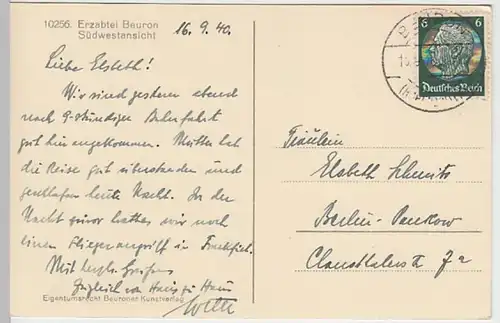 10256. Erzabtei Beuron
Südwestansicht
16. 9. 40.
Liebe Elsbeth!
Wir sind gestern abend
nach 9-stündiger Bahnfahrt
gut angekommen. Mutter hat
die Reise gut überstanden und
geschlafen heute Nacht. In der
Nacht zuvor hatten wir noch
einen Fliegerangriff in
Mit herzl. Grüßen
zugleich von Haus zu Haus
Willi
Eigentumsrecht Beuroner Kunstverlag
6 6
Deutsches Reich
Fräulein
Elsbeth Schmitz
Berlin-Pankow
7a